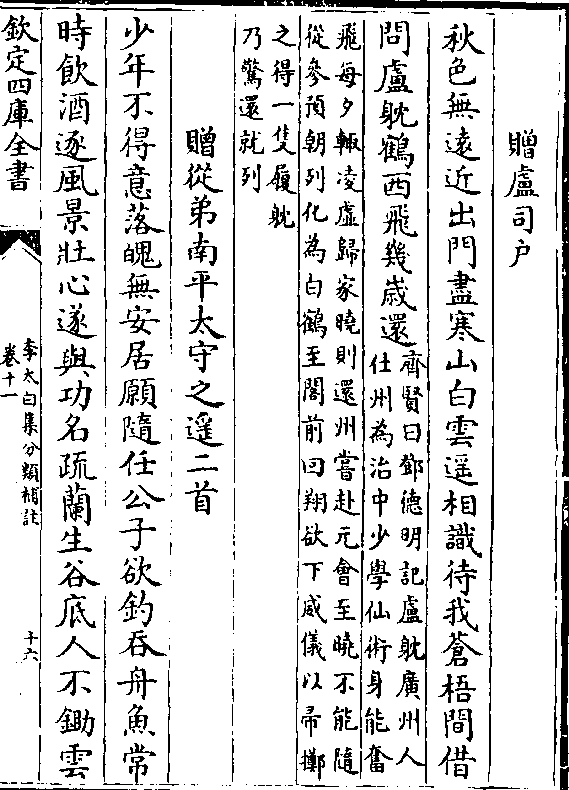 贈盧司户
秋色無遠近出門盡寒山白雲遥相識待我蒼梧間借
問盧躭鶴西飛幾歳還
齊賢曰鄧德明記盧躭廣州人
仕州為治中少學仙術身能奮
飛每夕輙凌虛歸家曉則還州嘗赴元會至曉不能隨
從參預朝列化為白鶴至閣前回翔欲下威儀以帚擲
之得一隻履躭
乃驚還就列
贈從弟南平太守之遥二首
少年不得意落魄無安居願隨任公子欲釣吞舟魚常
時飲酒逐風景壯心遂與功名疏蘭生谷底人不鋤雲
欽定四庫全書
李太白集分類補註
卷十一
十六